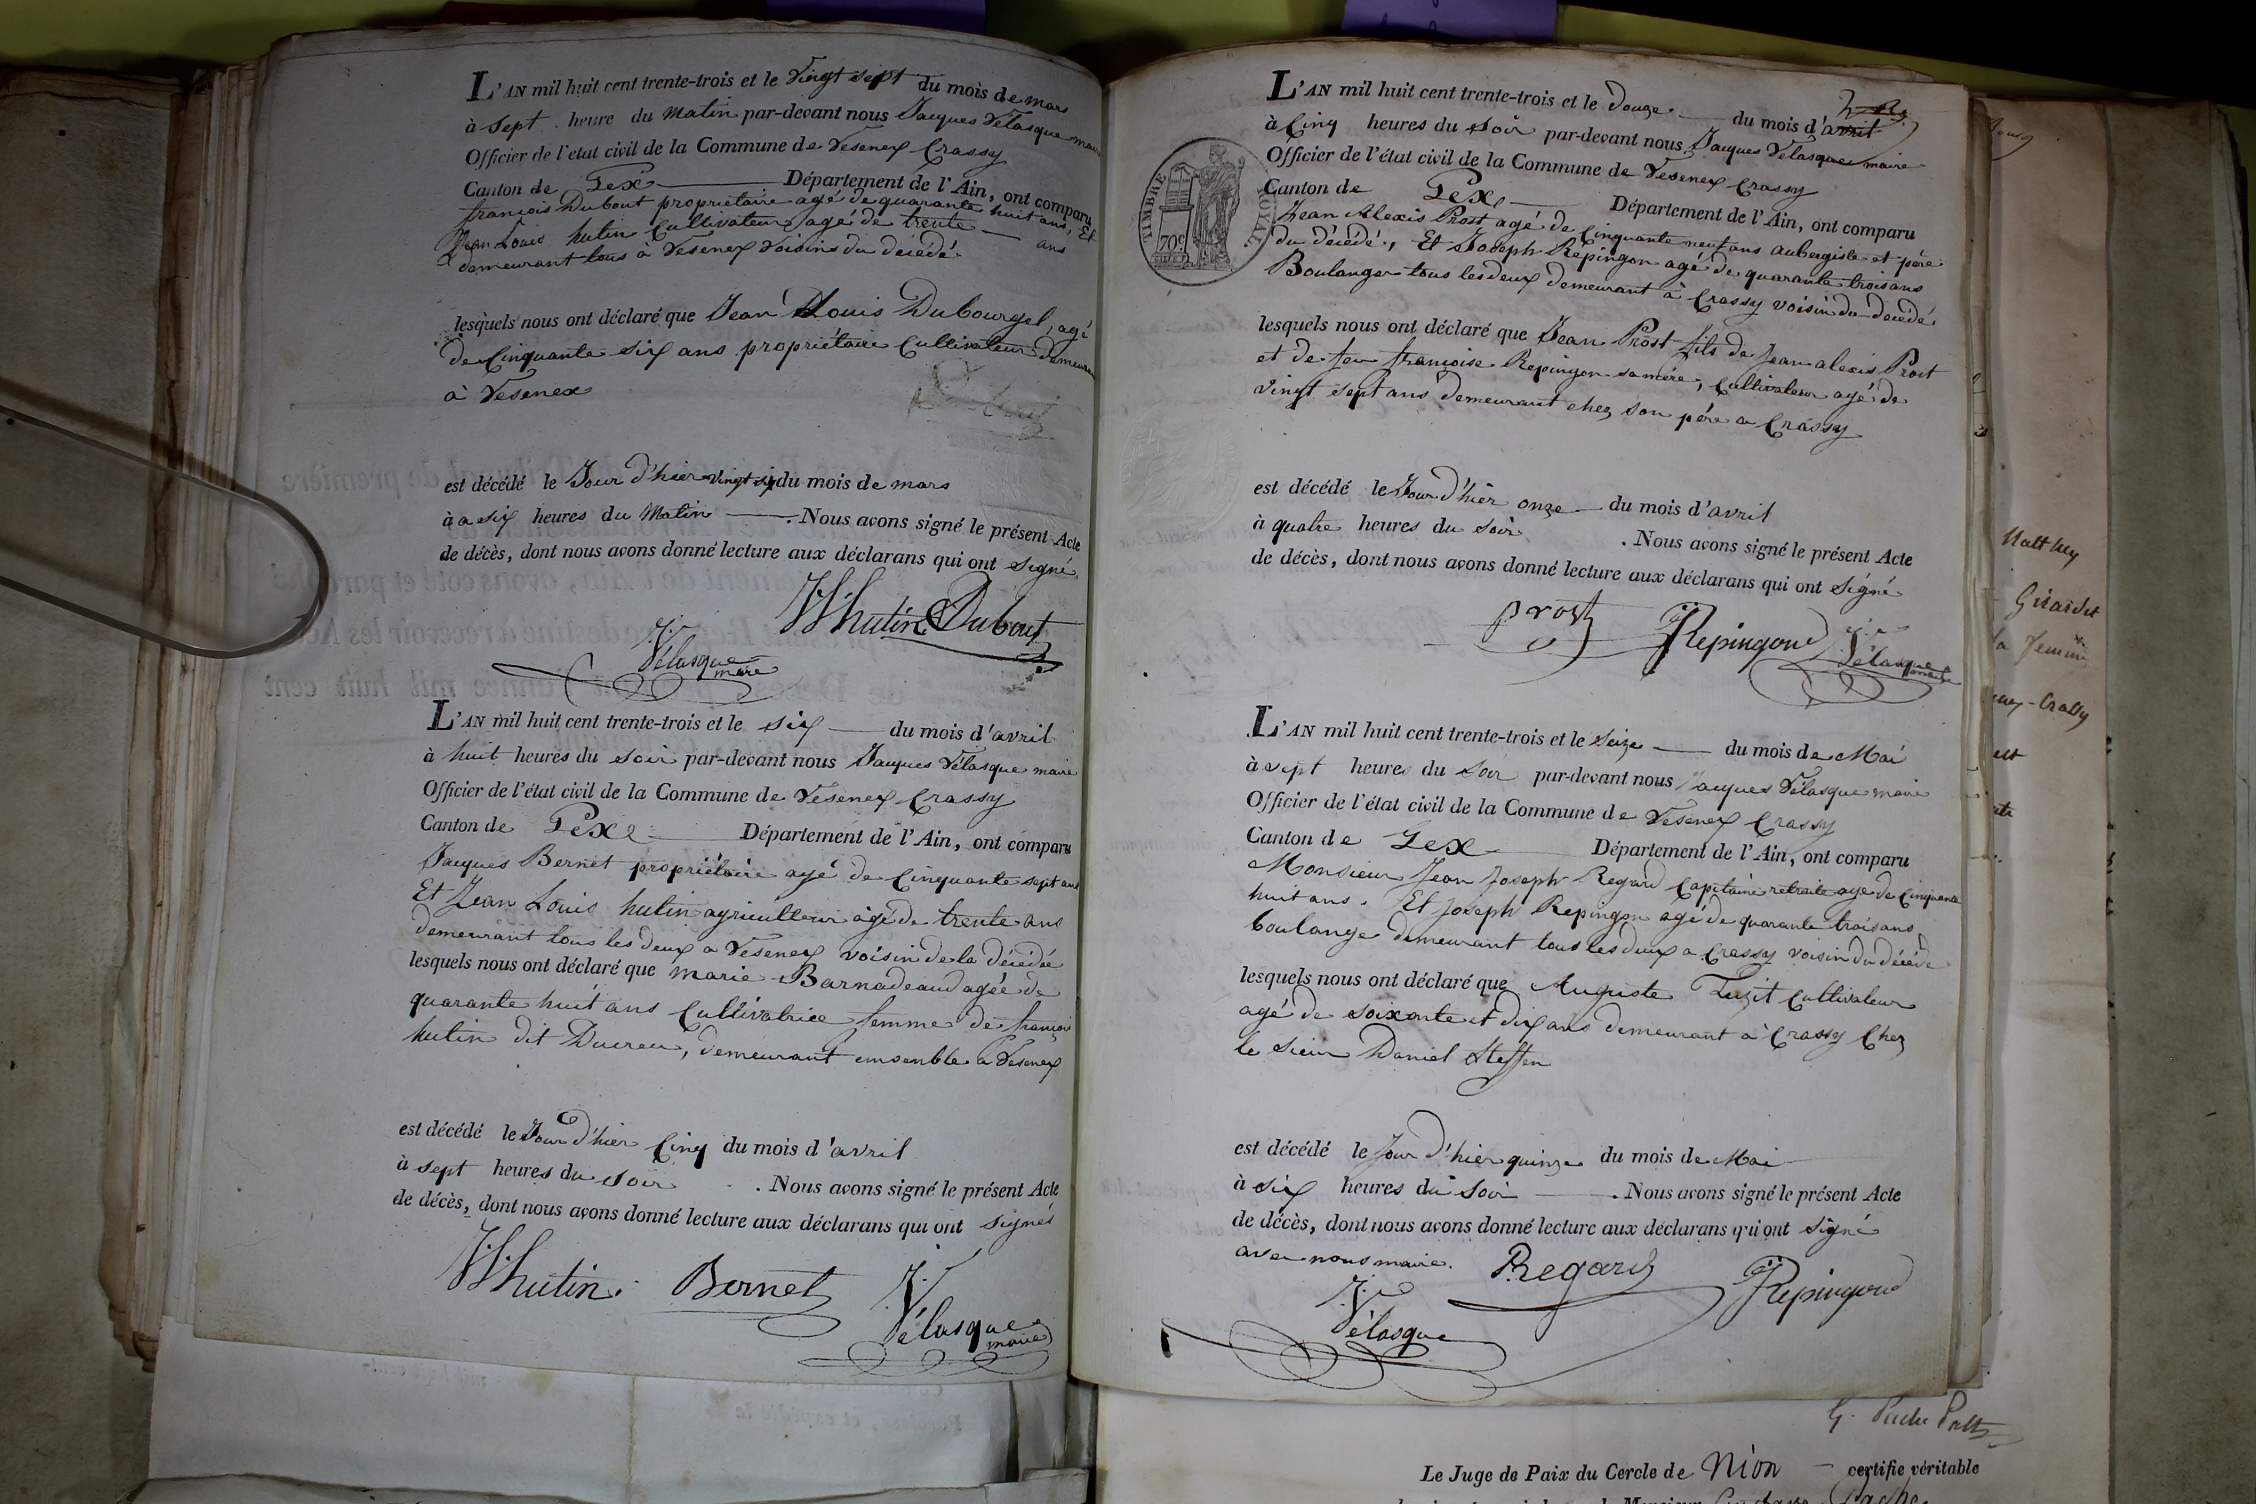 L'AN mil huit cent trente-trois et le Vingt sept du mois de mars
à Sept heure du Matin par-devant nous Jacques Vélasque maire
Officier de l'état civil de la Commune de Vesenex Crassy
Canton de Gex Département de l'Ain, ont comparu
françois Dubout propriétaire agé de quarante huit ans, Et
Jean Louis hutin Cultivateur agé de trente ans
demeurant tous à Vesenex Voisins du décédé
lesquels nous ont déclaré que Jean Louis Dubourgel, agé
de Cinquante six ans propriétaire Cultivateur demeurant
à Vesenex
est décédé le Jour d'hier vingt six du mois de mars
à a six heures du Matin . Nous avons signé le présent Acte
de décès, dont nous avons donné lecture aux déclarans qui ont signé
JLhutin Dubout
J. Vélasque
maire
L'AN mil huit cent trente-trois et le six du mois d'avril
à huit heures du soir par-devant nous Jacques Vélasque maire
Officier de l'état civil de la Commune de Vesenex Crassy
Canton de Gex Département de l'Ain, ont comparu
Jacques Bernet propriétaire agé de Cinquante sept ans
Et Jean Louis hutin agriculteur âgé de trente ans
demeurant tous les deux a Vesenex voisin de la décédée
lesquels nous ont déclaré que marie Barnadeaud agée de
quarante huit ans Cultivatrice femme de françois
hutin dit Ducreu, demeurant ensemble a Vesenex
est décédé le Jour d'hier Cinq du mois d'avril
à sept heures du soir . Nous avons signé le présent Acte
de décès, dont nous avons donné lecture aux déclarans qui ont signés
JLhutin. Bernet J. Vélasque
maire
L'AN mil huit cent trente-trois et le Douze du mois d'avril
à Cinq heures du soir par-devant nous Jacques Vélasque maire
Officier de l'état civil de la Commune de Vesenex Crassy
TIMBRE ROYAL
70c
Canton de Gex Département de l'Ain, ont comparu
Jean Alexis Prost agé de Cinquante neuf ans aubergiste et père
du décédé, Et Joseph Repingon agé de quarante trois ans
Boulanger tous les deux demeurant à Crassy voisin du décédé
lesquels nous ont déclaré que Jean Prost fils de Jean alexis Prost
et de feu françoise Repingon sa mére, Cultivateur agé de
vingt sept ans demeurant chez son père a Crassy
est décédé le Jour d'hier onze du mois d'avril
à quatre heures du soir . Nous avons signé le présent Acte
de décès, dont nous avons donné lecture aux déclarans qui ont signé
prost JRepingond J. Vélasque
L'AN mil huit cent trente-trois et le Seize du mois de Mai
à sept heures du soir par-devant nous Jacques Vélasque maire
Officier de l'état civil de la Commune de Vesenex Crassy
Canton de Gex Département de l'Ain, ont comparu
Monsieur Jean Joseph Regard Capitaine retraite age de Cinquante
huit ans. Et Joseph Repingon agé de quarante trois ans
boulange demeurant tous les deux a Crassy voisin du décédé
lesquels nous ont déclaré que Auguste Tuzit Cultivateur
agé de soixante et dix ans demeurant à Crassy Chez
le sieur Daniel Steffen
est décédé le Jour d'hier quinze du mois de Mai
à six heures du soir . Nous avons signé le présent Acte
de décès, dont nous avons donné lecture aux déclarans qui ont signé
avec nous maire. Regard JRepingond
J. Vélasque
Matthey
Girardet
Le Juge de Paix du Cercle de Nion certifie véritable